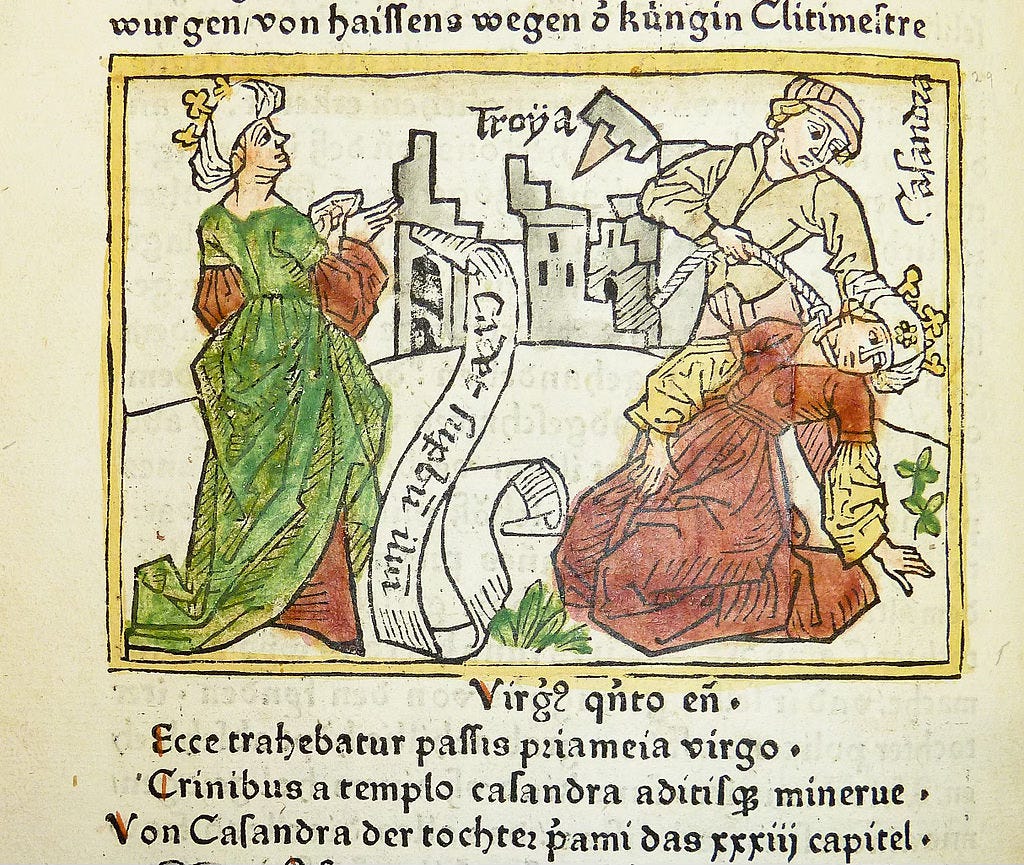 wurgen/von haissens wegen d̄ kůngin Clitimestre
Troÿa
Casandra
Cadet superbū iliū
Virgꝰ qñto eñ.
Ecce trahebatur passis priameia virgo.
Crinibus a templo casandra aditisqꝫ minerue.
Von Casandra der tochter p̄ami das xxxiij capitel.